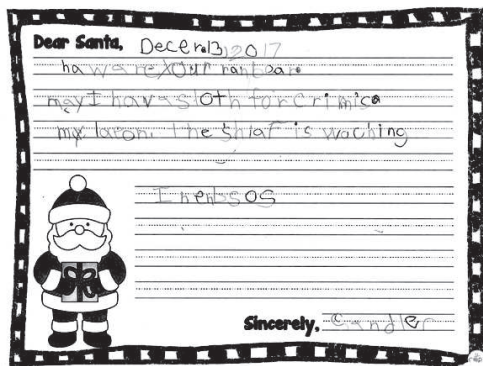 Dear Santa, Decer.13,2017
ha w are your rantdar
may I hav a sloth for Crimisa
my laron. The Shlaf is waching
I henbsos
Sincerely, Candler